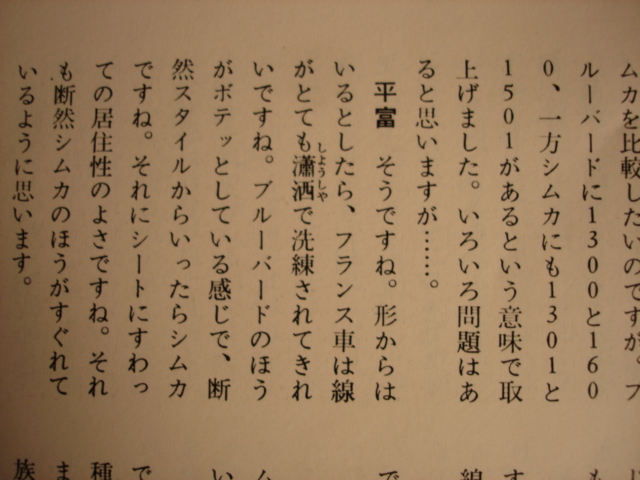 ムカを比較したいのですが。ブ
ルーバードに1300と160
0、一方シムカにも1301と
1501があるという意味で取
上げました。いろいろ問題はあ
ると思いますが……。
平富　そうですね。形からは
いるとしたら、フランス車は線
がとても瀟洒で洗練されてきれ
しようしや
いですね。ブルーバードのほう
がボテッとしている感じで、断
然スタイルからいったらシムカ
ですね。それにシートにすわっ
ての居住性のよさですね。それ
も断然シムカのほうがすぐれて
いるように思います。
も
す
線
で
ム
い
で
種
ま
族